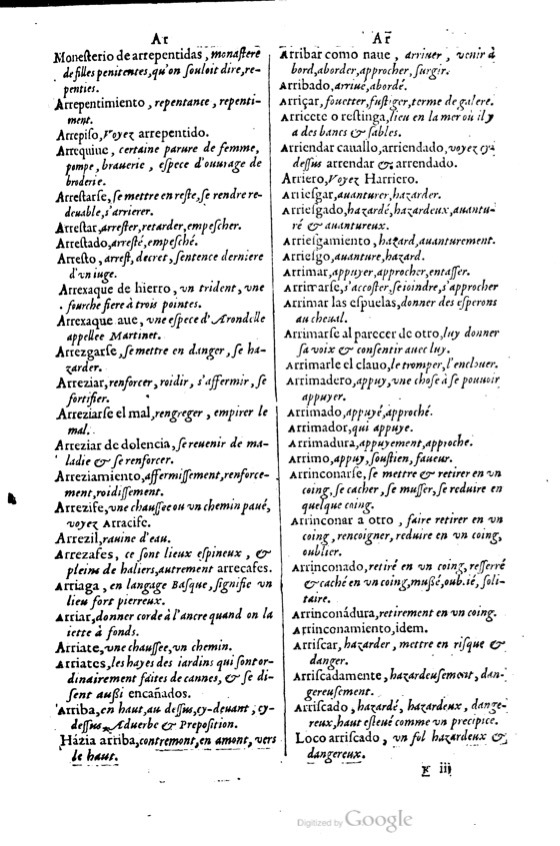 Ar
Monesterio de arrepentidas, monastere
de filles penitentes, qu'on souloit dire, re-
penties.
Arrepentimiento, repentance, repenti-
ment.
Arrepiso, Voyez arrepentido.
Arrequiue, certaine parure de femme,
pompe, brauerie, espece d'ouurage de
broderie.
Arrestarse, se mettre en reste, se rendre re-
deuable, s'arrierer.
Arrestar, arrester, retarder, empescher.
Arrestado, arresté, empesché.
Arresto, arrest, decret, sentence derniere
d'vn iuge.
Arrexaque de hierro, vn trident, vne
fourche fiere à trois pointes.
Arrexaque aue, vne espece d'Arondelle
appellee Martinet.
Arrezgarse, se mettre en danger, se ha-
zarder.
Arreziar, renforcer, roidir, s'affermir, se
fortifier.
Arreziarse el mal, rengreger, empirer le
mal.
Arreziar de dolencia, se reuenir de ma-
ladie & se renforcer.
Arreziamiento, affermissement, renforce-
ment, roidissement.
Arrezife, vne chaussee ou vn chemin paué,
voyez Arracife.
Arrezil, rauine d'eau.
Arrezafes, ce sont lieux espineux, &
pleins de haliers, autrement arrecafes.
Arriaga, en langage Basque, signifie vn
lieu fort pierreux.
Arriar, donner corde à l'ancre quand on la
iette à fonds.
Arriate, vne chaussee, vn chemin.
Arriates, les hayes des iardins qui sont or-
dinairement faites de cannes, & se di-
sent aussi encañados.
Arriba, en haut, au dessus, cy-deuant, cy-
dessus, Aduerbe & Preposition.
Házia arriba, contremont, en amont, vers
le haut.
Ar
Arribar como naue, arriuer, venir à
bord, aborder, approcher, surgir.
Arribado, arriué, abordé.
Arriçar, fouetter, fustiger, terme de galere.
Arricete o restinga, lieu en la mer où il y
a des bancs & sables.
Arriendar cauallo, arriendado, voyez cy
dessus arrendar & arrendado.
Arriero, Voyez Harriero.
Arriesgar, auanturer, hazarder.
Arriesgado, hazardé, hazardeux, auantu-
ré & auantureux.
Arriesgamiento, hazard, auanturement.
Arriesgo, auanture, hazard.
Arrimar, appuyer, approcher, entasser.
Arrimarse, s'accoster, se ioindre, s'approcher
Arrimar las espuelas, donner des esperons
au cheual.
Arrimarse al parecer de otro, luy donner
sa voix & consentir auec luy.
Arrimarle el clauo, le tromper, l'enclouer.
Arrimadero, appuy, vne chose à se pouuoir
appuyer.
Arrimado, appuyé, approché.
Arrimador, qui appuye.
Arrimadura, appuyement, approche.
Arrimo, appuy, soustien, faueur.
Arrinconarse, se mettre & retirer en vn
coing, se cacher, se musser, se reduire en
quelque coing.
Arrinconar a otro, faire retirer en vn
coing, rencoigner, reduire en vn coing,
oublier.
Arrinconado, retiré en vn coing, resserré
& caché en vn coing, mußé, oublié, soli-
taire.
Arrinconádura, retirement en vn coing.
Arrinconamiento, idem.
Arriscar, hazarder, mettre en risque &
danger.
Arriscadamente, hazardeusement, dan-
gereusement.
Arriscado, hazardé, hazardeux, dange-
reux, haut esleué comme vn precipice.
Loco arriscado, vn fol hazardeux &
dangereux.
F iij
Digitized by Google